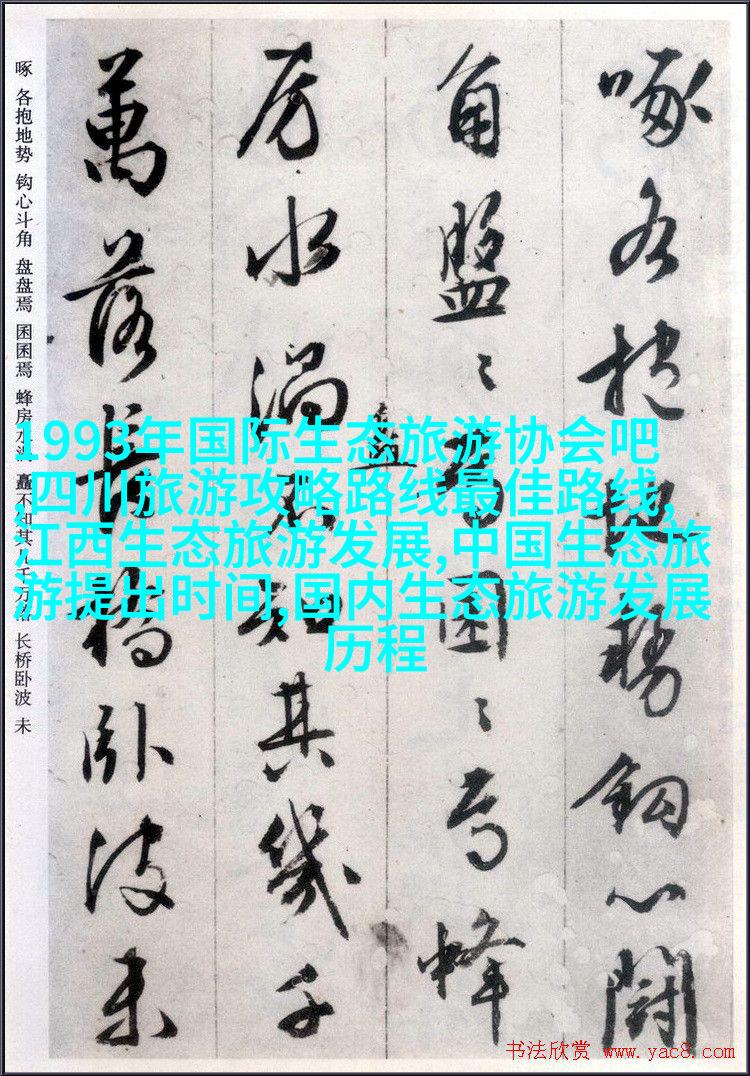 啄各抱地势钩心鬪
角盘〻焉囷〻焉蜂
房水涡矗不知其几千
萬落長橋卧波未
啄 各抱地势 钩心斗角 盘盘焉 囷囷焉 蜂房水涡 矗不知其几千万落 长桥卧波 未
1993年国际生态旅游协会吧
,四川旅游攻略路线最佳路线,
江西生态旅游发展,中国生态旅
游提出时间,国内生态旅游发展
历程
书法欣赏 www.yac8.com